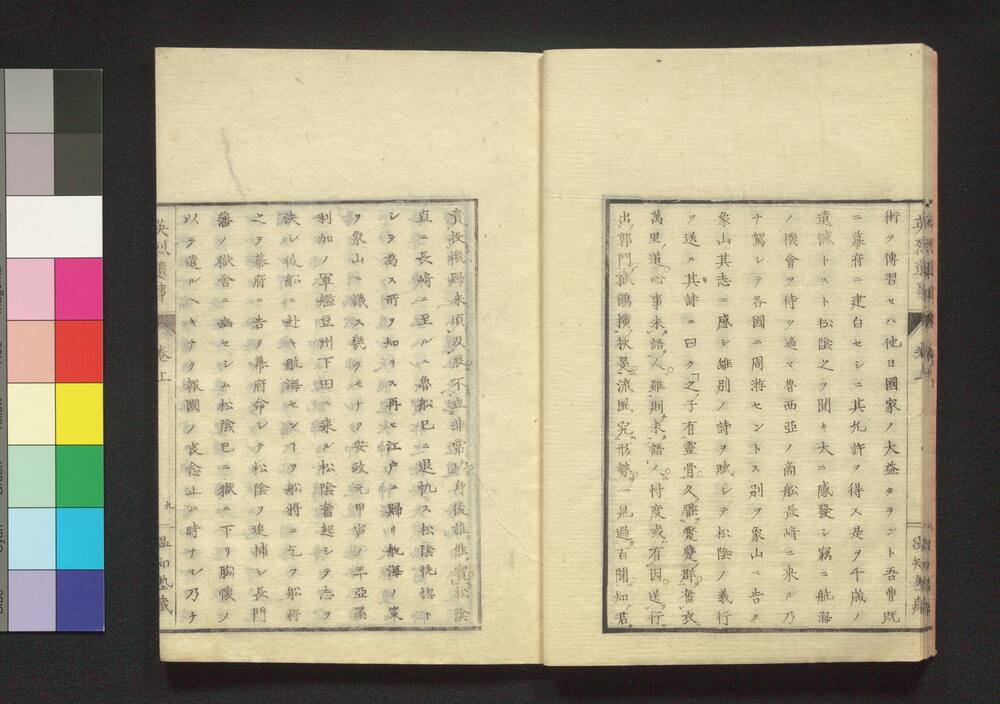 術ヲ傳習セハ他日國家ノ大益タラント吾曹既
ニ幕府ニ建白セシニ其允許ヲ得ス是ヲ千歳ノ
遺憾トスト松陰之ヲ聞キ大ニ感發シ竊ニ航海
ノ機會ヲ待ツ適マ魯西亞ノ商船長﨑ニ来ル乃
チ駕シテ各國ニ周游セントス別ヲ象山ニ告ク
象山其志ニ感シ離別ノ詩ヲ賦シテ松陰ノ義行
ヲ送ル其詩ニ曰ク之子有靈骨久厭躄躄群奮衣
萬里道心事未語人雖則未語人忖度或有因送行
出郭門孤鶴横秋旻
流風究形勢一見過百聞知者
貴投機歸来須及辰不立非常功身後誰能賓松陰
直ニ長﨑ニ至ルニ魯船已ニ退帆ス松陰恍惚ト
シテ為ス所ヲ知ラス再ヒ江戸ニ歸リ航海ノ策
ヲ象山ニ議ス幾クモナク安政元甲寅ノ年亞墨
利加ノ軍艦豆州下田ニ来ル松陰奮起シテ志ヲ
決シ彼船ニ赴キ航海センヿヲ船將ニ乞フ船將
之ヲ幕府ニ告ク幕府命シテ松陰ヲ追捕シ長門
藩ノ獄舎ニ幽セシム松陰已ニ獄ニ下リ胸懐ノ
以テ遣ルヘキナク報國ノ衷念止ム時ナシ乃チ
英烈遺事
巻上
九
温知塾蔵